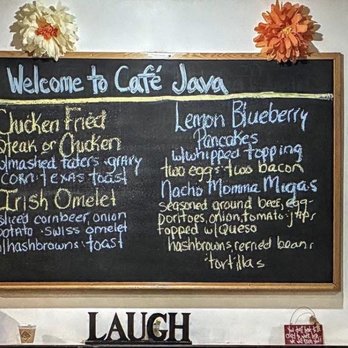 Welcome to Café Java
Chicken Fried
Steak or Chicken
w/mashed taters · gravy
corn · Texas toast
Irish Omelet
sliced cornbeef, onion
potato · swiss omelet
w/hashbrowns · toast
Lemon Blueberry
Pancakes
w/whipped topping
two eggs · two bacon
Nacho Momma Migas
seasoned ground beef, egg
tortoes, onion, tomato
topped w/Queso
hashbrowns, refried beans
tortillas
LAUGH